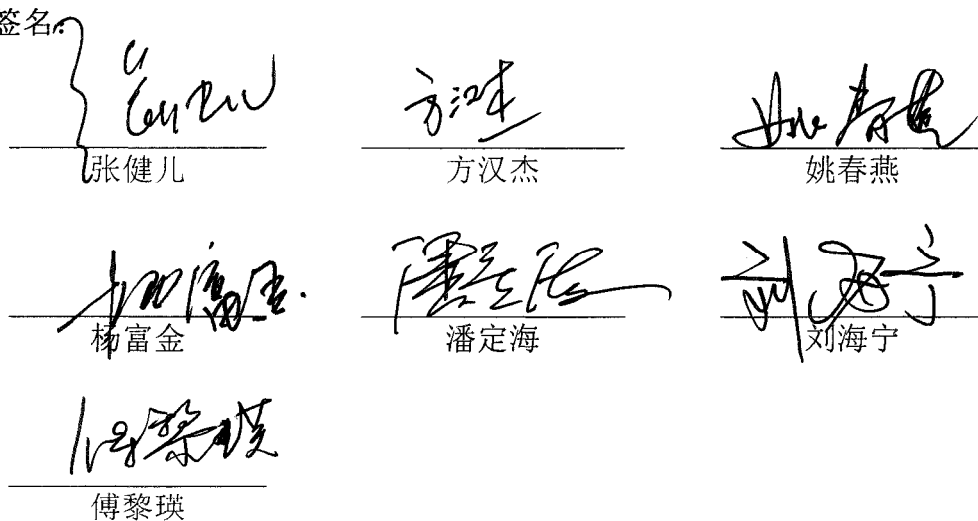 签名:
张健儿 方汉杰 姚春燕
杨富金 潘定海 刘海宁
傅黎瑛